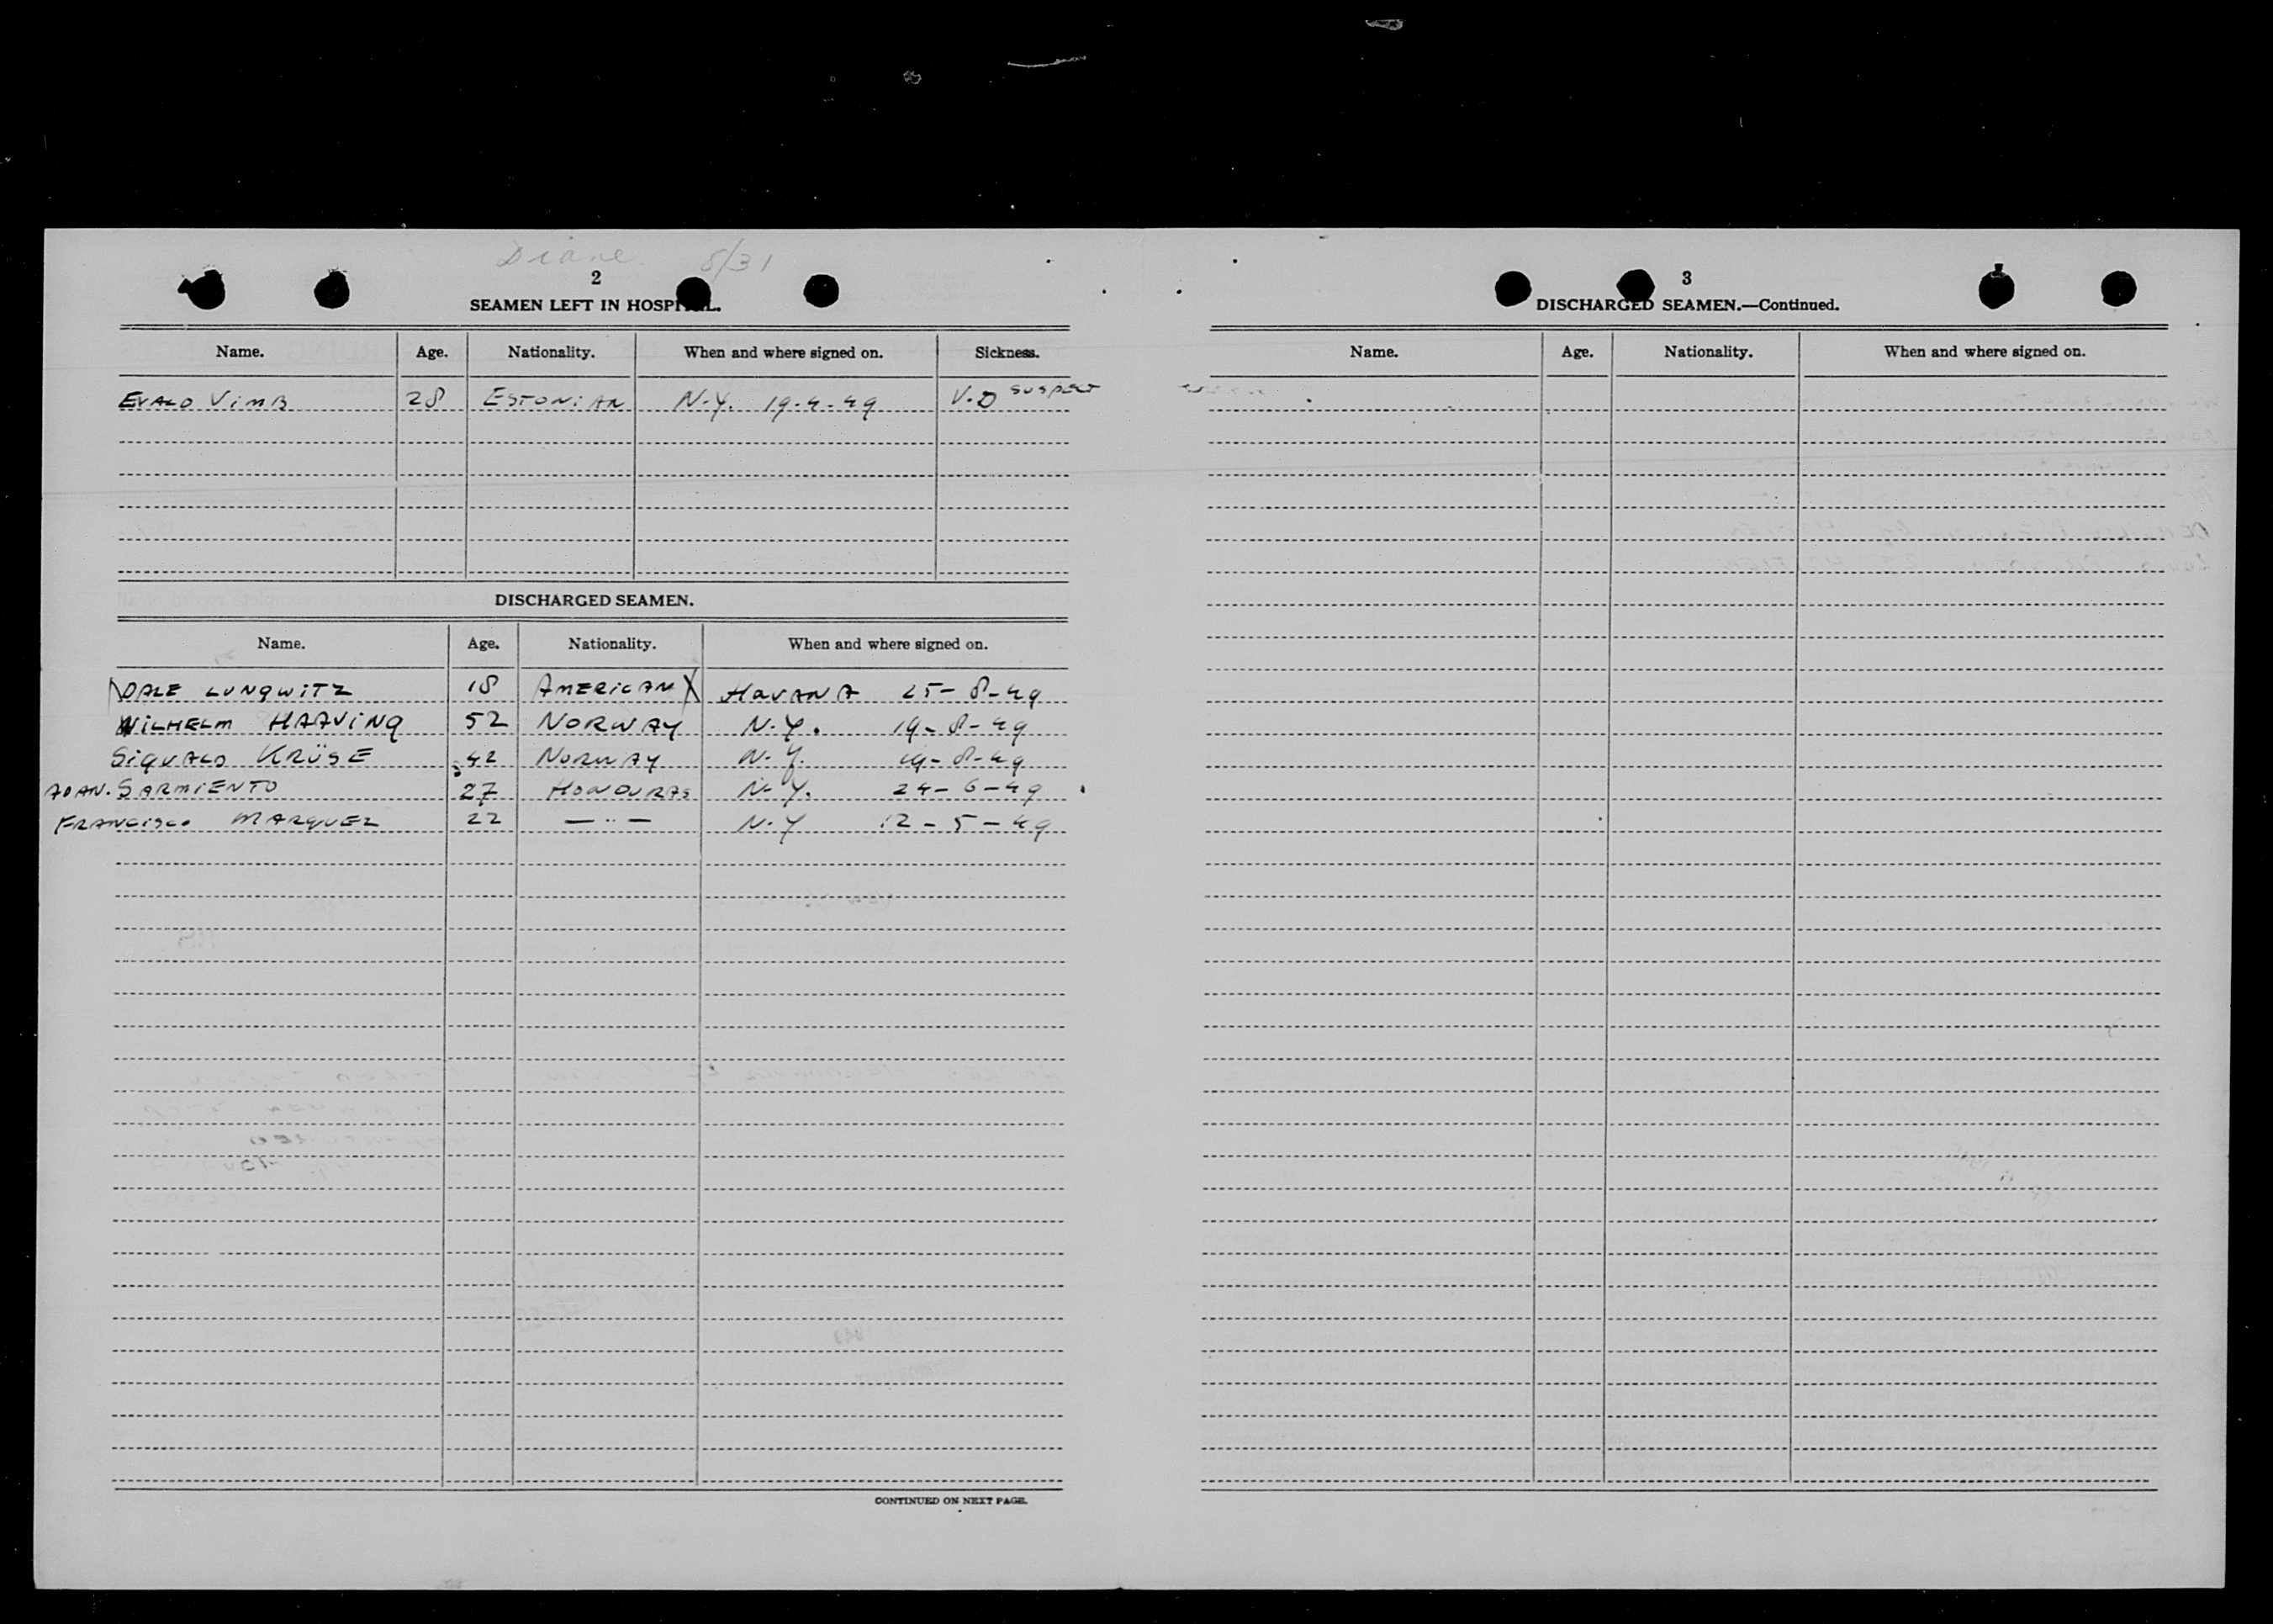 Diane 8/31
2
SEAMEN LEFT IN HOSPITAL.
Name. Age. Nationality. When and where signed on. Sickness.
EVALD VIMB 28 ESTONIAN N.Y. 19-4-49 V.D SUSPECT
DISCHARGED SEAMEN.
Name. Age. Nationality. When and where signed on.
DALE LUNGWITZ 18 AMERICAN X HAVANA 25-8-49
WILHELM HAAVING 52 NORWAY N.Y. 19-8-49
SIGVALD KRÜSE 42 NORWAY N.Y. 19-8-49
ADAN. SARMIENTO 27 HONDURAS N.Y. 24-6-49
FRANCISCO MARQUEZ 22 — " — N.Y 12-5-49
CONTINUED ON NEXT PAGE.
3
DISCHARGED SEAMEN.—Continued.
Name. Age. Nationality. When and where signed on.